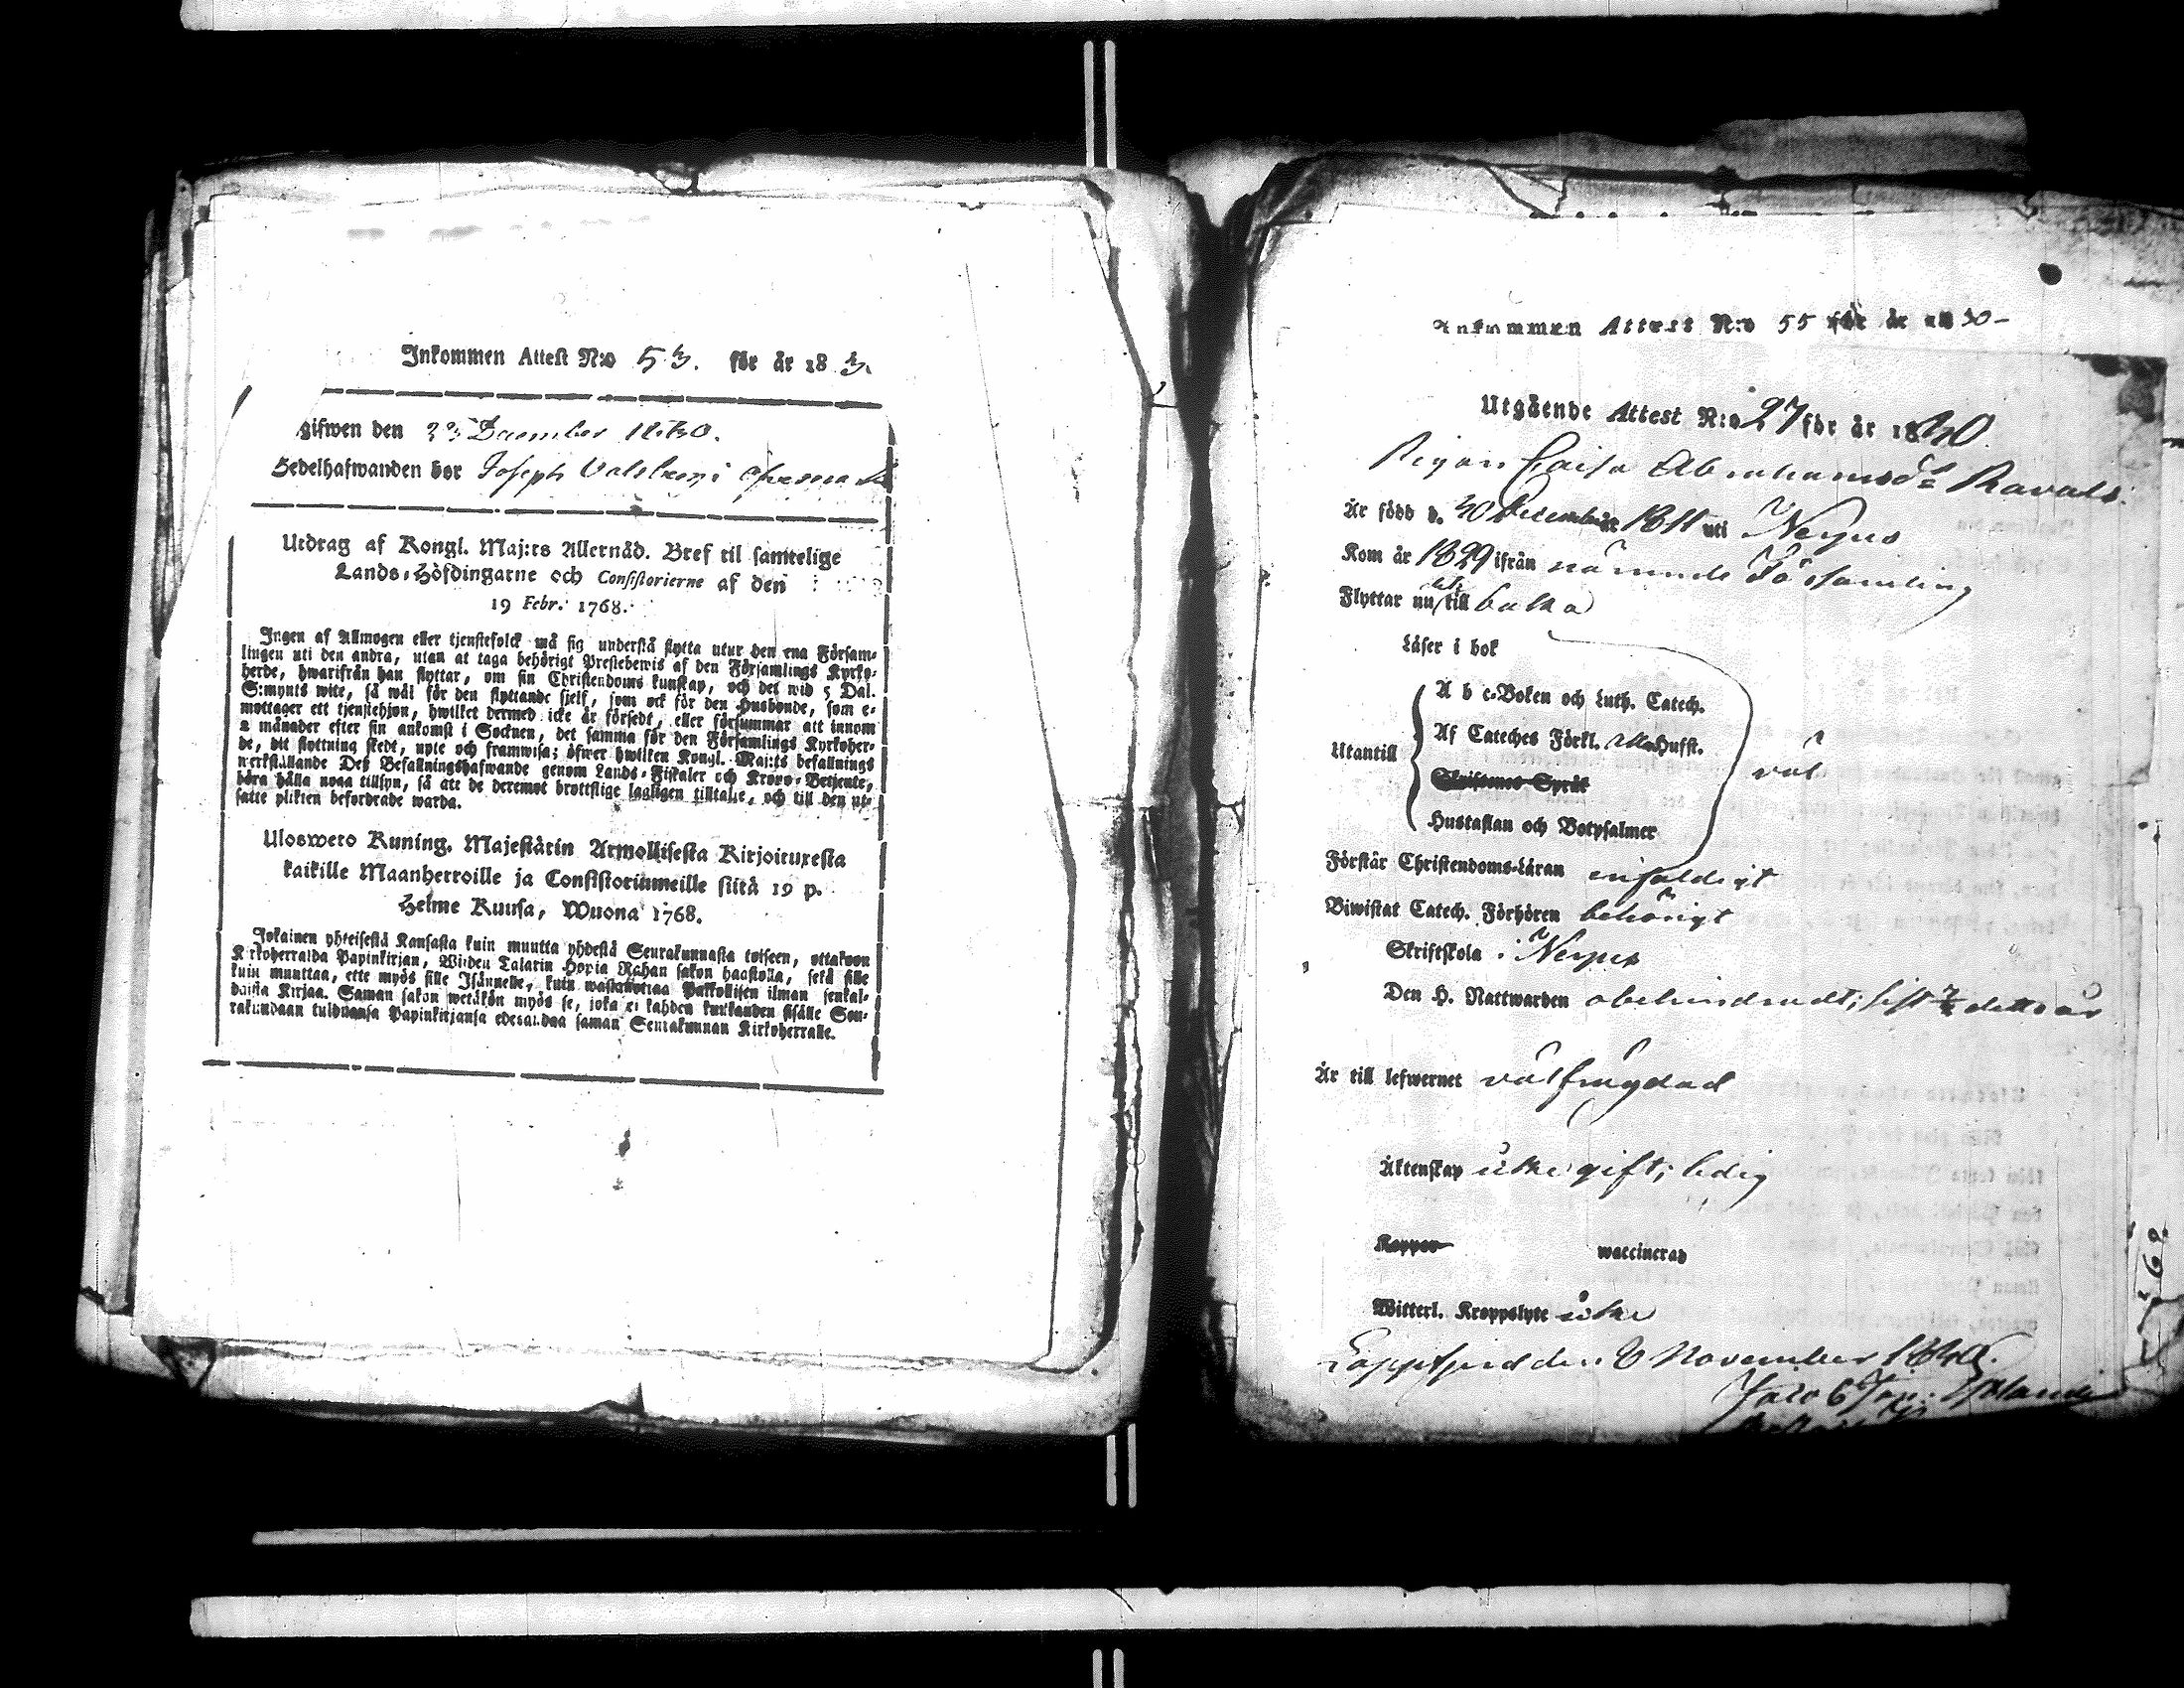 Inkommen Attest N:o 53. för år 18
gifwen den 23 December 1830.
Sedelhafwanden bor Joseph
Utdrag af Kongl. Maj:ts Allernåd. Bref til samtelige
Lands-Höfdingarne och Consistorierne af den
19 Febr. 1768.
Ingen af Allmogen eller tjenstefolck må sig understå flytta utur den ena Försam-
lingen uti den andra, utan at taga behörigt Prestebewis af den Församlings Kyrko-
herde, hwarifrån han flyttar, om sin Christendoms kunskap, och det wid 5 Dal.
S:mynts wite, så wäl för den flyttande sjelf, som ock för den Husbonde, som e-
mottager ett tjenstehjon, hwilket dermed icke är försedt, eller försummar att innom
2 månader efter sin ankomst i Socknen, det samma för den Församlings Kyrkoher-
de, dit flyttning skedt, upte och framwisa; öfwer hwilken Kongl. Maj:ts befallnings
werkställande Deß Befallningshafwande genom Lands-Fiskaler och Krono-Betjente,
böra hålla noga tillsyn, så att de deremot brottslige lagligen tilltalte, och till den ut-
satte plikten befordrade warda.
Ulosweto Kuning. Majestätin Armollisesta Kirjoituxesta
kaikille Maanherroille ja Consistoriumeille siitä 19 p.
Helme Kuusa, Wuona 1768.
Jokainen yhteisestä Kansasta kuin muutta yhdestä Seurakunnasta toiseen, ottakoon
Kirkoherralda Papinkirjan, Wiiden Talarin Hopia Rahan sakon haastolla, sekä sille
kuin muuttaa, ette myös sille Isännelle, kuin wastanottaa Palkollisen ilman senkal-
daista Kirjaa. Saman sakon wetäkön myös se, joka ei kahden kuukauden sisälle Seu-
rakundaan tulduansa Papinkirjansa edesandaa saman Seurakunnan Kirkoherralle.
Inkommen Attest N:o 55 för år 30-
Utgående Attest N:o 27 för år 1830.
Pigan Caisa Abrahamsdr Ravals.
Är född d. 30 December 1811 uti Nerpes
Kom år 1829 ifrån nämnde Församling
Flyttar nu till baka
Läser i bok
A b c-Boken och Luth. Catech.
Af Cateches Förkl. Hufst.
Utantill
väl
Skriftenes Språk
Hustaflan och Botpsalmer
Förstår Christendoms-Läran enfaldigt
Biwistat Catech. Förhören behörigt
Skriftskola i Nerpes
Den H. Nattwarden obehindradt; sist detta år
Är till lefwernet välfrägdad
Äktenskap icke gift; ledig
Koppor waccinerad
Witterl. Kroppslyte icke
Lappfjerd den 8 November 1830.